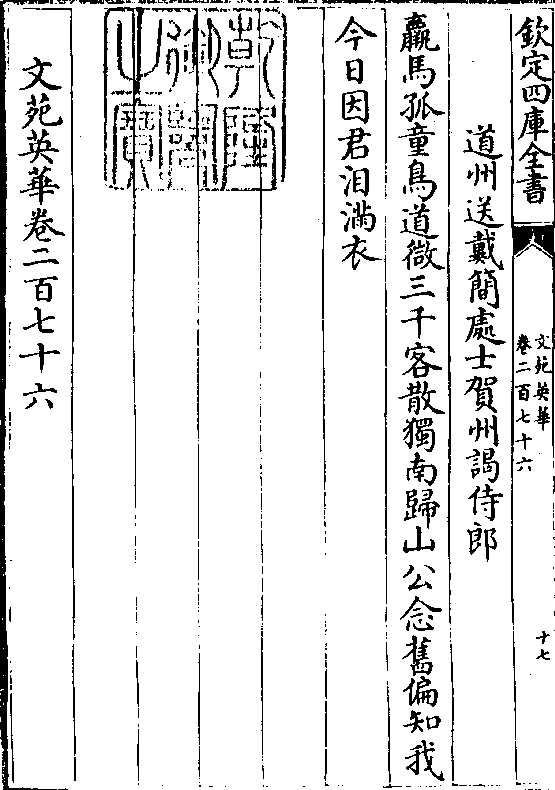 欽定四庫全書
文苑英華
卷二百七十六
十七
道州送戴簡處士賀州謁侍郎
羸馬孤童鳥道微三千客散獨南歸山公念舊偏知我
今日因君泪滿衣
乾隆御覽之寶
文苑英華卷二百七十六